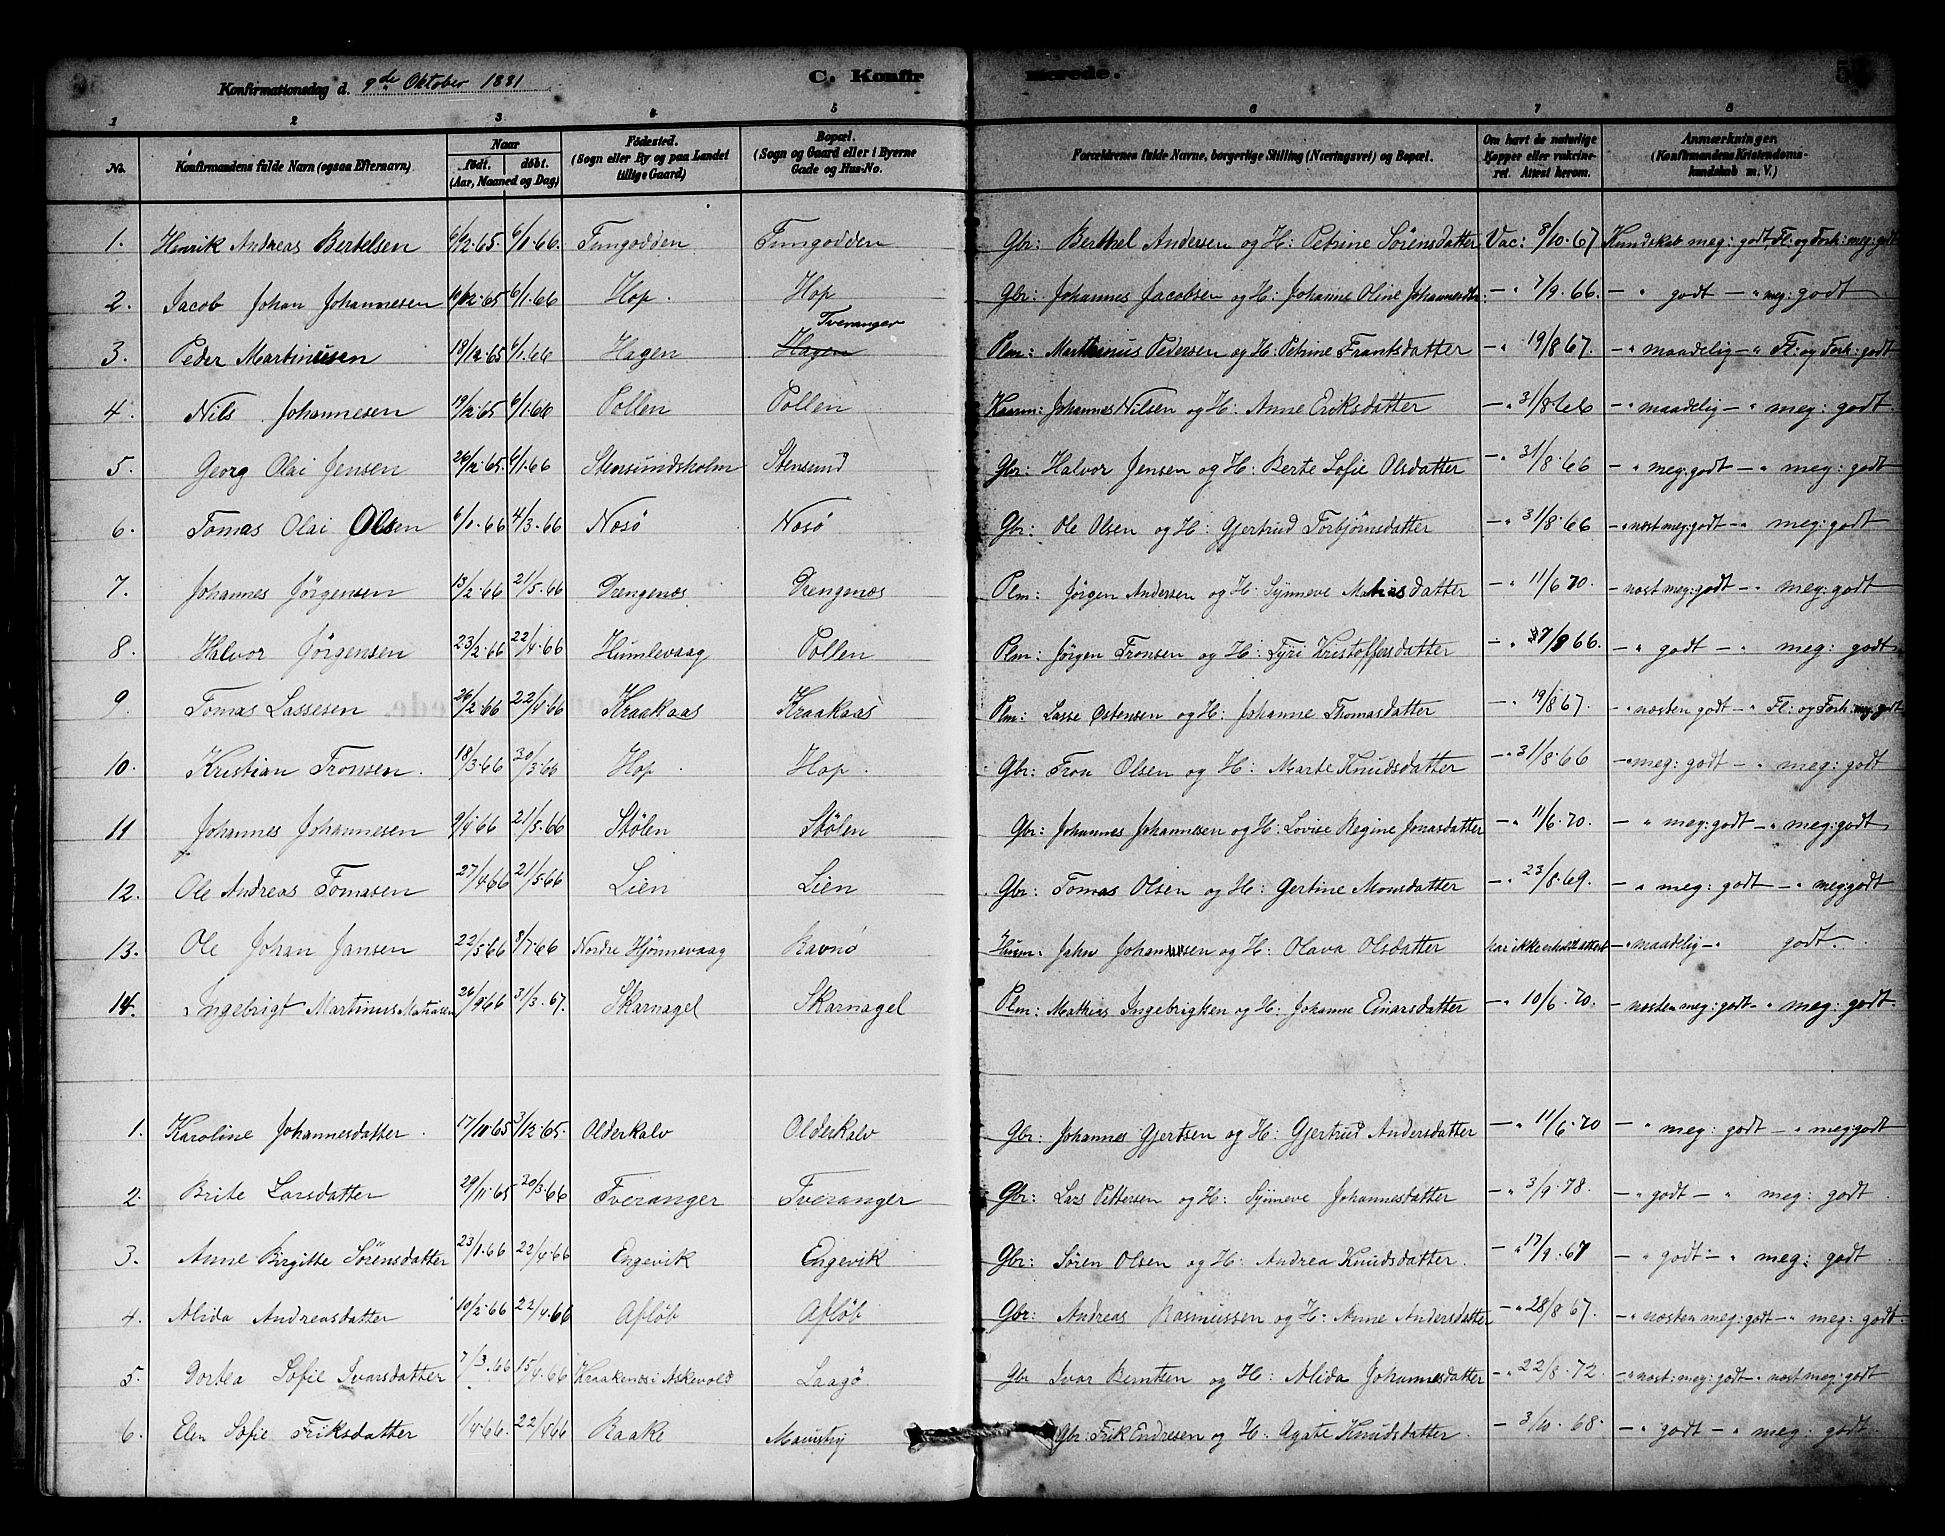 Konfirmationsdag d. 9de Oktober 1881 C. Konfirmerede.
1 2 3 4 5 6 7 8
No. Konfirmandens fulde Navn (ogsaa Efternavn) Naar født. døbt. (Aar, Maaned og Dag) Fødested. (Sogn eller By og paa Landet tillige Gaard) Bopæl. (Sogn og Gaard eller i Byerne Gade og Hus-No. Forældrenes fulde Navne, borgerlige Stilling (Næringsvei) og Bopæl. Om havt de naturlige Kopper eller vakcineret. Attest herom. Anmærkninger. (Konfirmandens Kristendomskundskab m. V.)
1. Henrik Andreas Bertelsen 6/12.65. 6/1.66. Tungodden Tungodden Gbr: Berthel Andersen og H: Petrine Sörensdatter Vac: 8/10.67 Kundskab meg: godt, Fl: og Forh: meg: godt
2. Jacob Johan Johannesen 6/1.66 Hop Hop Gbr: Johannes Jacobsen og H: Johanne Oline Johannesdtr: —" 7/9.66. —" godt —" meg: godt
3. Peder Martinusen 18/12.65 6/1.66 Hagen Hagen Tveranger Plm: Marthinus Pedersen og H: Petrine Frantsdatter —" 19/8 67. —" maadelig —" Fl: og Forh: godt
4. Nils Johannesen 19/12.65 6/1.66 Pollen Pollen Johannes Nilsen og H: Anne Eriksdatter —" 31/8 66 —" maadelig —" meg: godt.
5. Georg Olai Jensen 26/12.65 6/1.66 Stensundsholm Stensund Gbr: Halvor Jensen og H: Berte Sofie Olsdatter —" 31/8.66 —" meg: godt —" meg: godt
6. Tomas Olai Olsen 6/1.66 4/3.66 Nosö Nosö Gbr: Ole Olsen og H: Gjertrud Torbjörnsdatter —" 31/8.66 —" næst meg: godt —" meg: godt
7. Johannes Jörgensen 13/2.66 21/5.66 Drengenæs Drengenæs Plm: Jörgen Andersen og H: Synneve Matiasdatter —" 11/6 70. — næst meg: godt —" meg: godt
8. Halvor Jörgensen 23/2.66 22/4.66 Humlevaag Pollen Plm: Jörgen Tronsen og H: Tyri Kristoffersdatter —" 7/9 66. —" godt —" meg: godt
9. Tomas Lassesen 26/2.66 22/4.66 Kraakaas Kraakaas Plm: Lasse Ostensen og H: Johanne Thomasdatter —" 19/8 67. —" næsten godt —" Fl: og Forh: meg: godt
10. Kristian Tronsen. 18/3.66 30/3.66 Hop Hop. Gbr: Tron Olsen og H: Marte Knudsdatter —" 31/8.66 —" meg: godt —" meg: godt
11 Johannes Johannesen 9/4 66 21/5.66 Stölen Stölen Gbr: Johannes Johannesen og H: Lovise Regine Jonasdatter —" 11/6.70. —" meg: godt —" meg: godt
12. Ole Andreas Tomasen 27/4.66 21/5.66 Lien Lien Gbr: Tomas Olsen og H: Gertine Monsdatter —" 23/8.69. —" meg: godt —" meg: godt
13. Ole Johan Jansen 22/5.66 8/7.66 Nordre Hjönnevaag Ravnö Husm: Jahn Johannesen og H: Olava Olsdatter har ikke erholdt attest —" maadelig —" godt.
14. Ingebrigt Martinus Matiasen 31/3.67. Skarnagel Skarnagel Plm: Mathias Ingebrigtsen og H: Johanne Einarsdatter —" 10/6.70. — næsten meg: godt —" meg: godt.
1. Karoline Johannesdatter. 17/10.65 3/12.65. Olderkalv Olderkalv Gbr: Johannes Gjertsen og H: Gjertrud Andersdatter —" 11/6.70 —" meg: godt —" meg: godt
2. Brite Larsdatter 29/11.65 20/3.66 Tveranger Tveranger Gbr: Lars Pettersen og H: Synneve Johannesdatter —" 3/9.78. —" godt —" meg: godt
3. Anne Birgitte Sörensdatter 23/1.66 22/4.66 Engevik Engevik Gbr: Sören Olsen og H: Andrea Knudsdatter. —" 17/9.67 —" godt —" meg: godt
4. Alida Andreasdatter 10/2.66 22/4.66 Aflöb Aflöb Gbr: Andreas Rasmussen og H: Anne Andersdatter —" 28/8.67. —" næsten meg: godt —" meg: godt
5. Dortea Sofie Ivarsdatter 7/3.66 15/4.66 Kraakenæs i Askevold Laagö Gbr Ivar Berntsen og H: Alida Johannesdatter —" 22/8.72. —" næst: meg: godt " næst meg: godt
6. Elen Sofie Eriksdatter 1/4.66. 22/4 66 Raake Gbr: Erik Endresen og H: Agate Knudsdatter. — 3/10.68. —" godt —" meg: godt